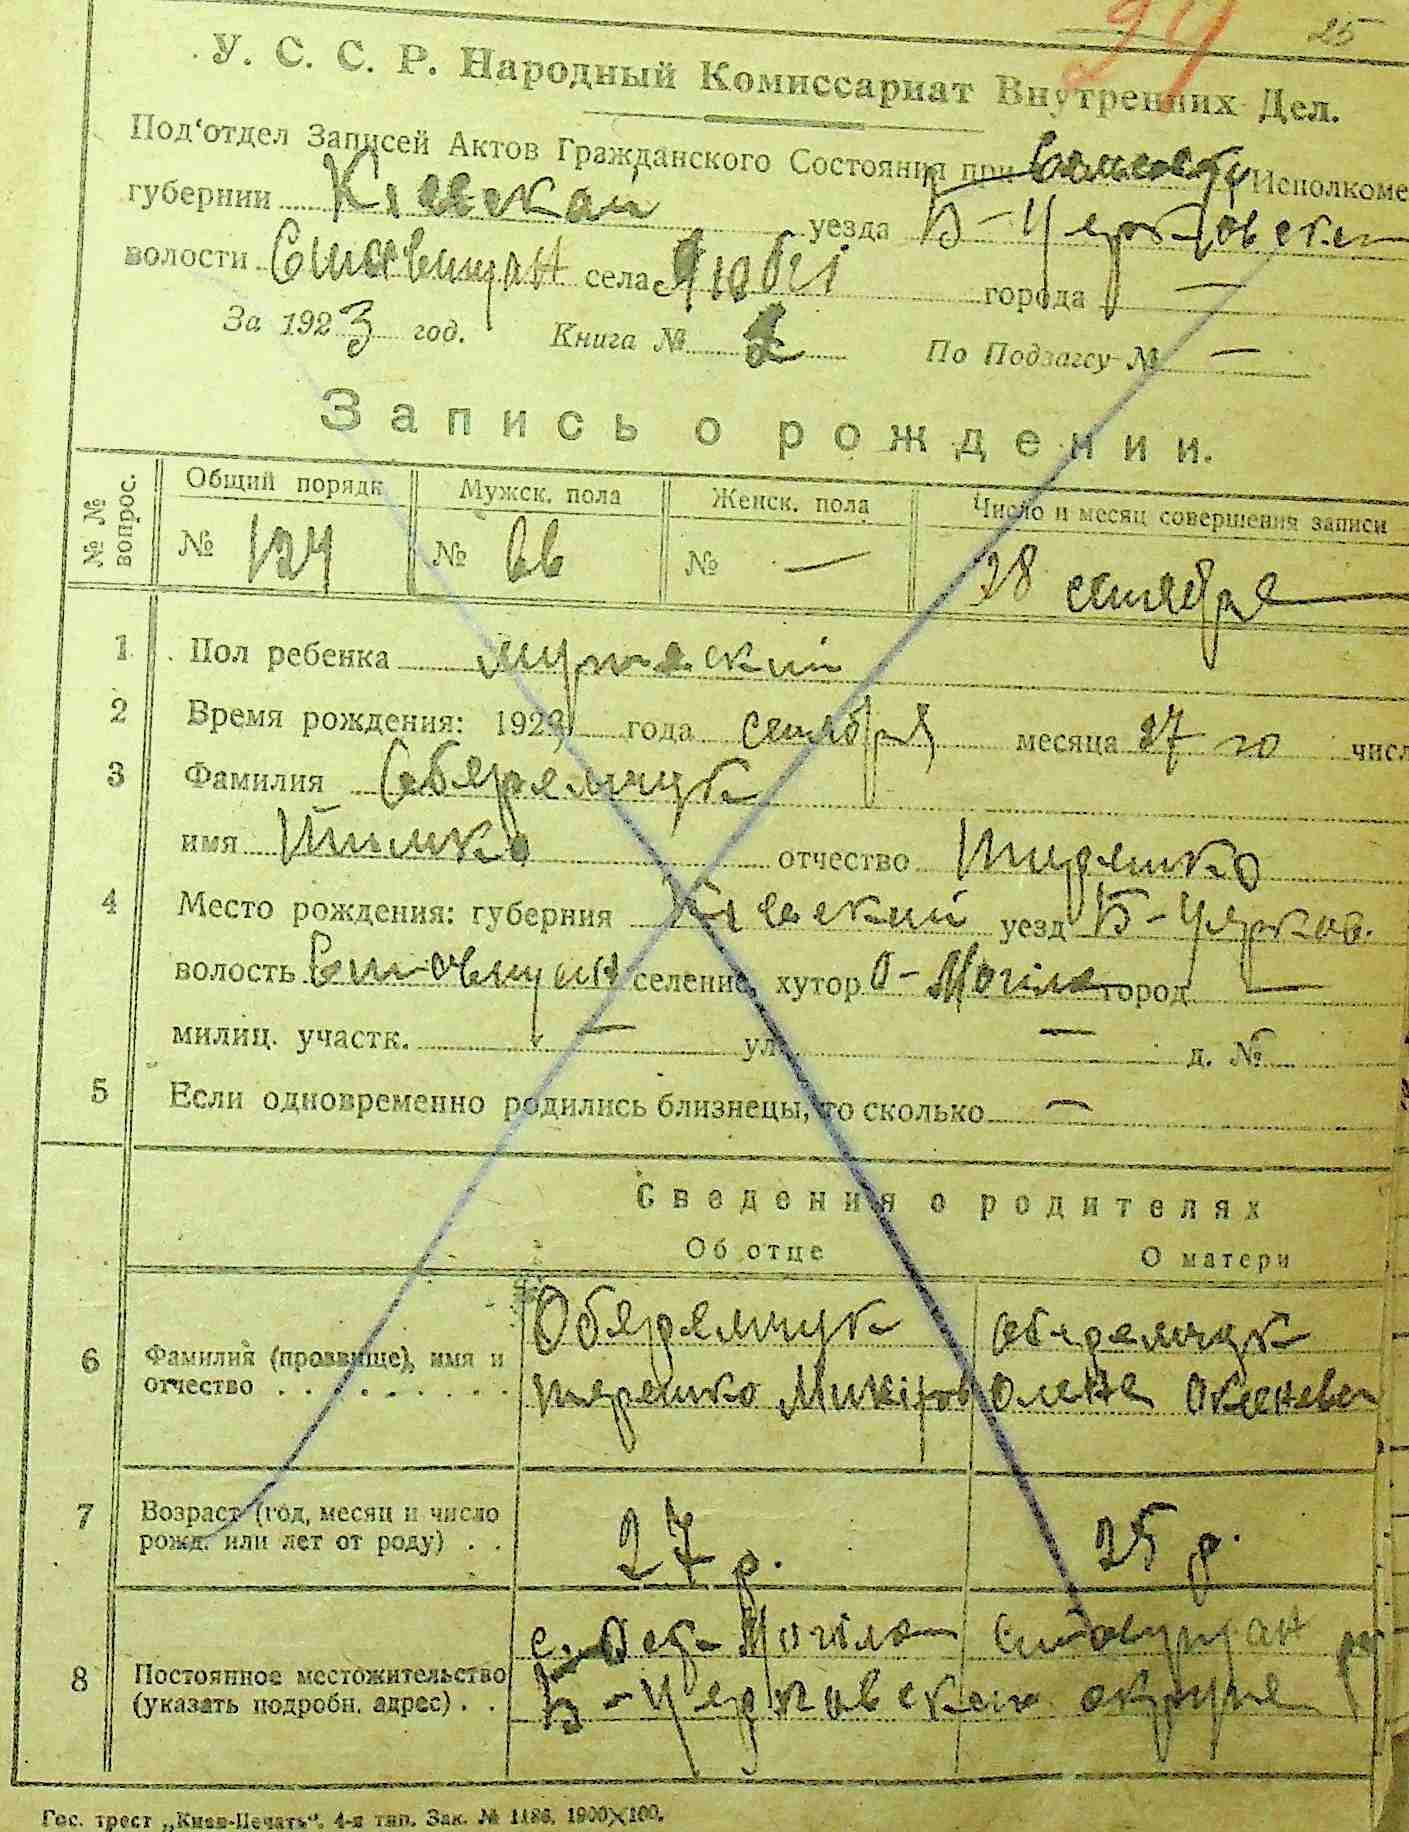 25
У. С. С. Р. Народный Комиссариат Внутренних Дел.
Под'отдел Записей Актов Гражданского Состояния при Исполкоме
губернии Кіевской уезда Б-Церковской
волости села города —
За 1923 год. Книга № 2 По Подзагсу № —
Запись о рождении.
№ № вопрос. Общий порядк Мужск. пола Женск. пола Число и месяц совершения записи
№ 124 № 66 № — 28 сентября
1 Пол ребенка мужеский
2 Время рождения: 1923 года сентября месяца 27 го числ
3 Фамилия Оберемчук
имя отчество Терешко
4 Место рождения: губерния Кіевский уезд Б-Церков.
волость селение, хутор О-Могіла город —
милиц. участк. — ул. — д. №
5 Если одновременно родились близнецы, то сколько —
Сведения о родителях
Об отце О матери
6 Фамилия (прозвище), имя и отчество . . . . . . . . . Оберемчук Оберемчук
Терешко Олена
7 Возраст (год, месяц и число рожд. или лет от роду) . . 27 р. 25 р.
8 Постоянное местожительство (указать подробн. адрес) . . с. Могіла
Б-Церковской округи
Гос. трест „Киев-Печать“. 4-я тип. Зак. № 1186. 1900×100.